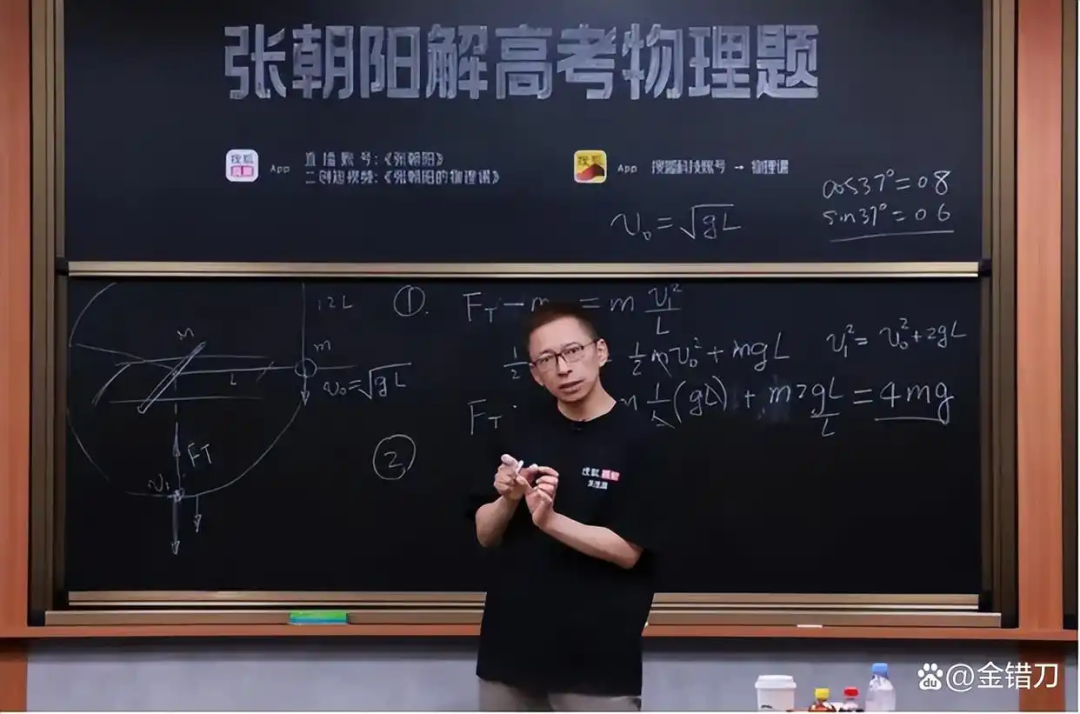 张朝阳解高考物理题
搜狐
App
直播账号:《张朝阳》
二创短视频:《张朝阳的物理课》
搜狐
App
搜狐科技账号 → 物理课
cos37°=0.8
sin37°=0.6
v₀=√gL
1.2L
①.
F_T - m = m v₁²/L
M
m
L
v₀=√gL
1/2
1/2 m v₀² + mgL
v₁² = v₀² + 2gL
F_T
m 1/L (gL) + m 2gL/L = 4mg
②
F_T
v₁
搜狐
物理课
@金错刀